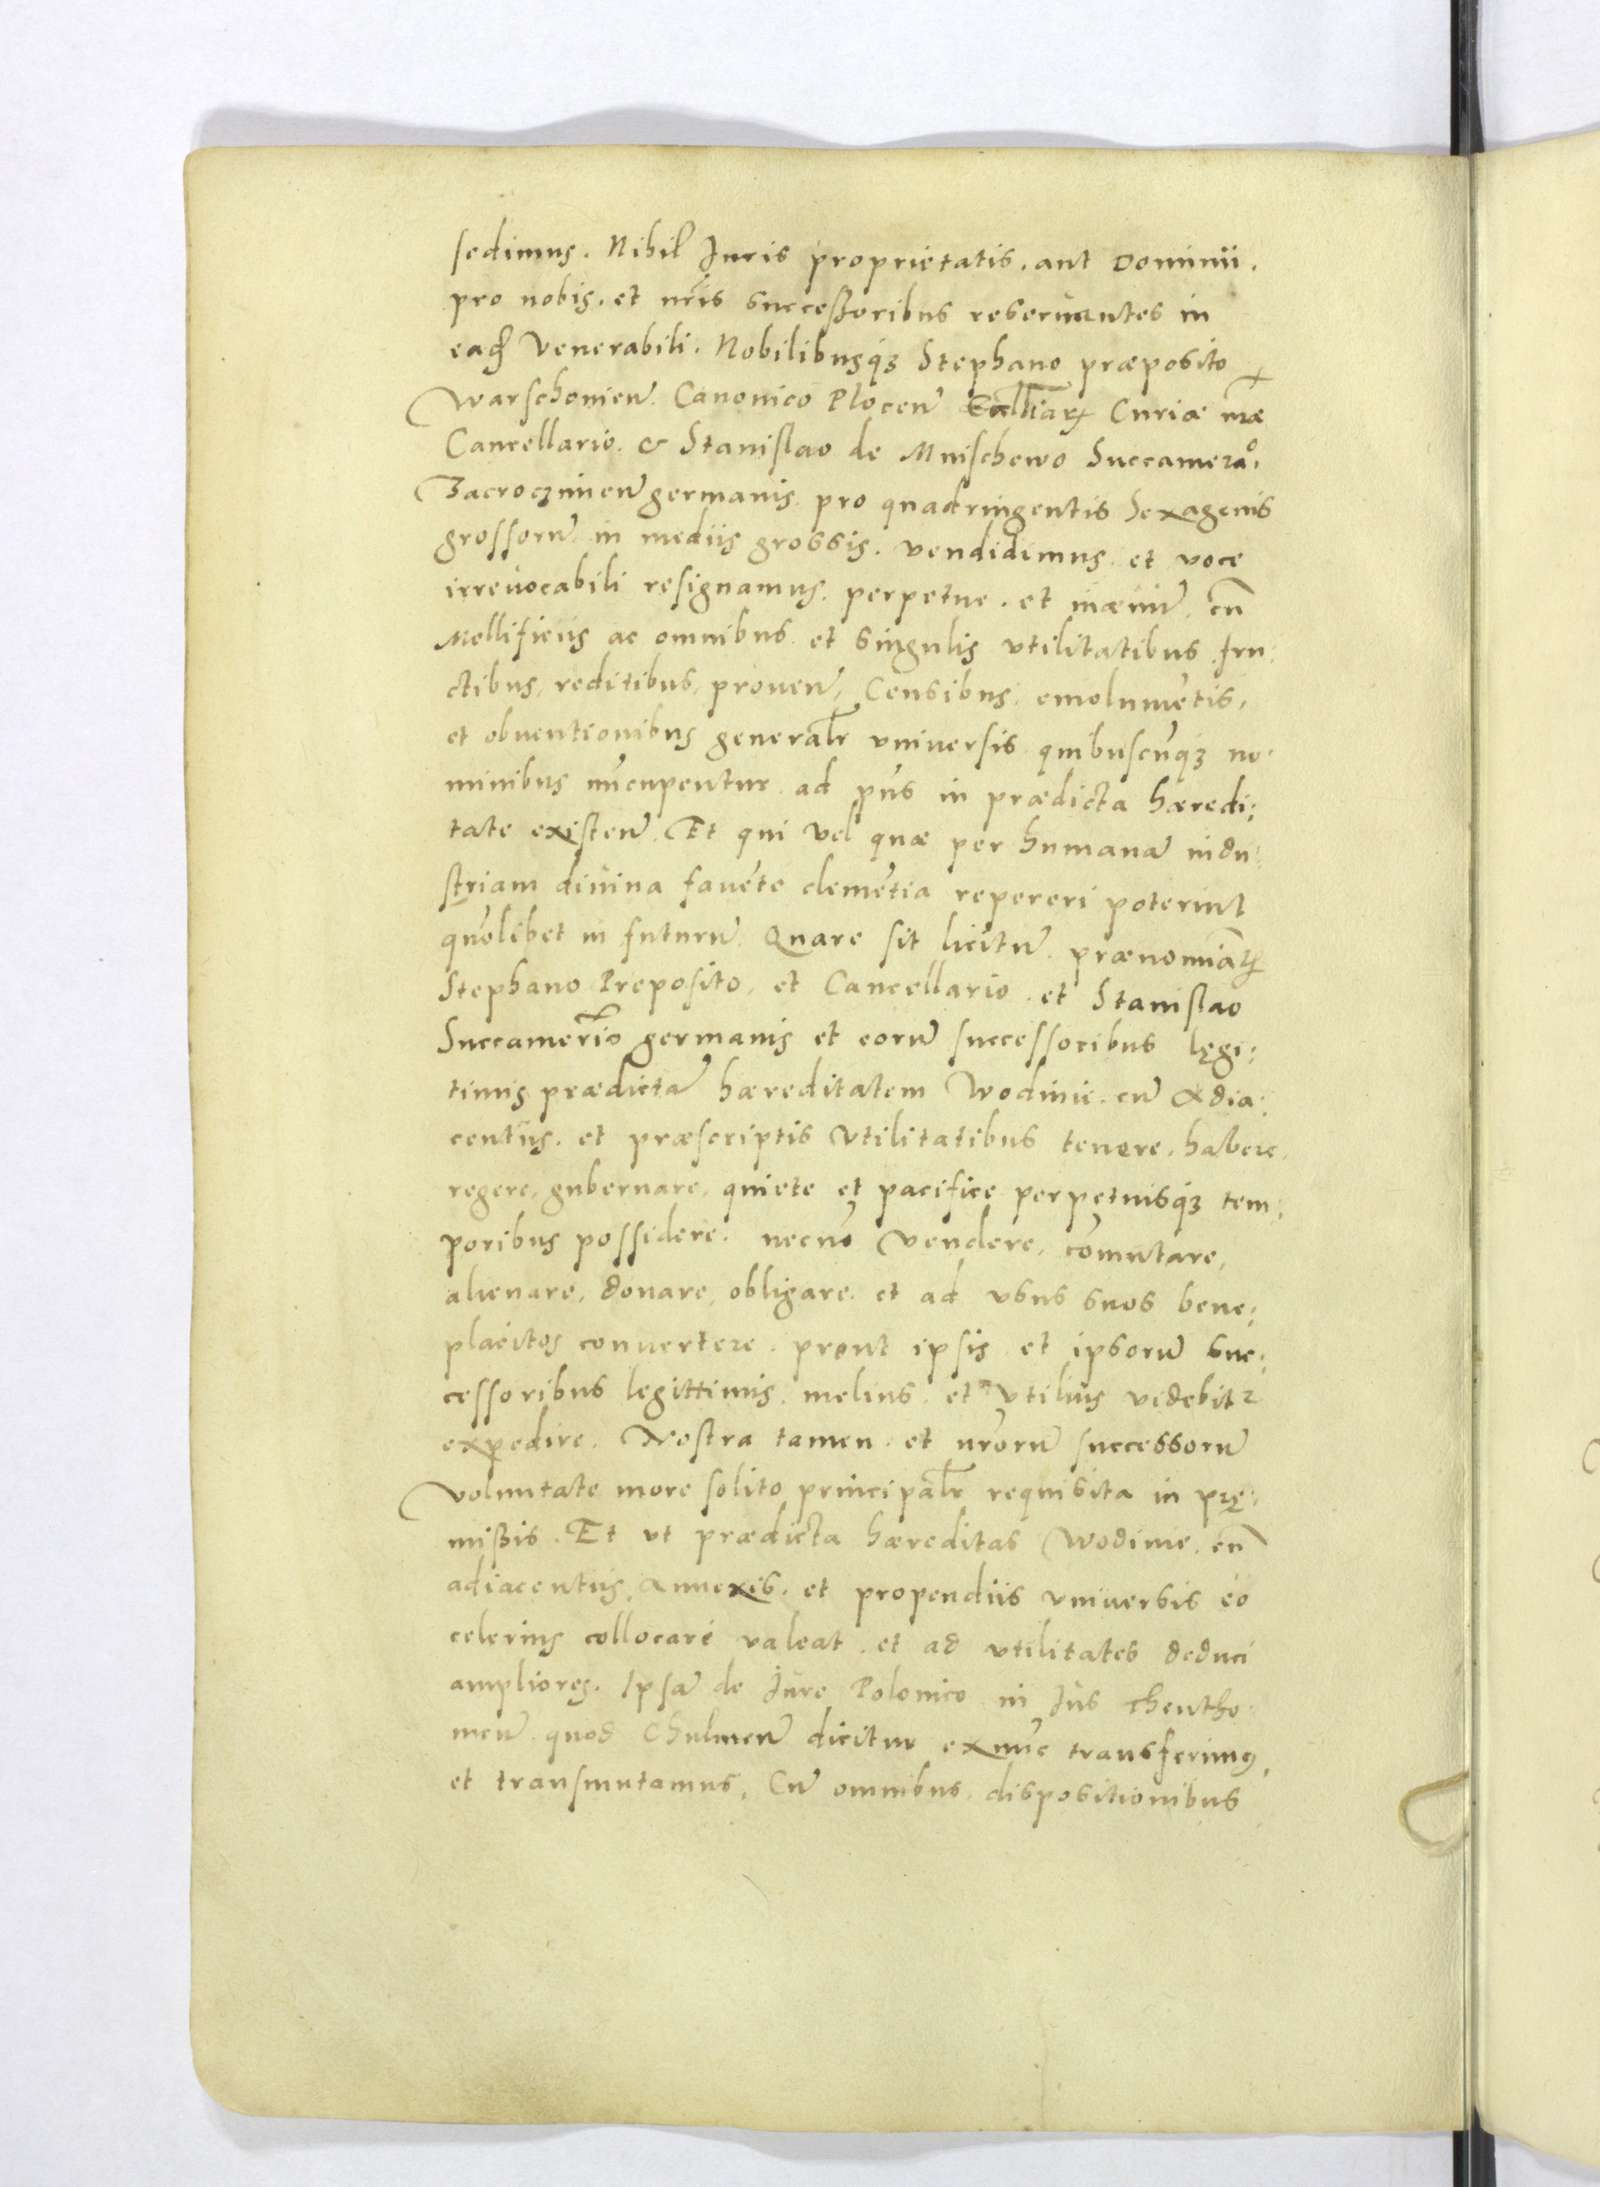 sedimus. Nihil Juris proprietatis. aut Dominii.
pro nobis. et nr̃is successoribus reservantes in
eadẽ Venerabili. Nobilibusq̃ȝ Stephano præposito
Warschovien̄. Canonico Plocen̄ Curiæ nr̃æ
Cancellario. & Stanislao de Mnischewo Succamerario.
Zacroczimien̄ germanis pro quadringentis Sexagenis
grossorū in mediis grossis. vendidimus et voce
irrevocabili resignamus. perpetue. et in ævū. cū
Mellificiis ac omnibus et singulis utilitatibus fru:
ctibus, reditibus, proven̄, Censibus, emolumētis,
et obventionibus generalr̃ universis quibuscūqȝ no:
minibus nūcupentur ad p̄ns in prædicta hæredi:
tate existen̄. Et qui vel quæ per humanā indu:
striam divina favēte clemētia repereri poterint
quōlibet in futurū. Quare sit licitū. prænominatis
Stephano Preposito, et Cancellario. et Stanislao
Succamerio germanis et eorū successoribus lęgi:
timis prædictā hæreditatem Wodinie. cū Adia:
centiis. et præscriptis Utilitatibus tenere, habere,
regere, gubernare, quiete et pacifice perpetuisqȝ tem:
poribus possidere. necnō Vendere, cōmutare,
alienare, donare, obligare. et ad usus suos bene:
placitos convertere. prout ipsis et ipsorū suc:
cessoribus legittimis. melius. et utilius videbitr
expedire. Nostra tamen. et nr̃orū successorū
voluntate more solito principalr̃ requisita in prę:
missis. Et ut prædicta hæreditas Wodinie. cū
adiacentiis Annexis. et propendiis universis eo
celerius collocari valeat. et ad utilitates deduci
ampliores. Ipsā de Jure Polonico in Jus theutho:
nicū quod Chulmen̄ dicitur exnūc transferimus
et transmutamus, Cū omnibus, dispositionibus